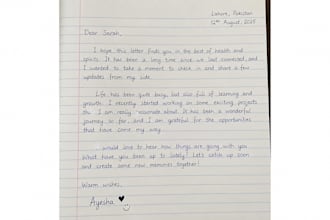 Lahore, Pakistan
12th August, 2025
Dear Sarah,
I hope this letter finds you in the best of health and
spirits. It has been a long time since we last connected, and
I wanted to take a moment to check in and share a few
updates from my side.
Life has been quite busy, but also full of learning and
growth. I recently started working on some exciting projects
I am really about. It has been a wonderful
journey so far, and I am grateful for the opportunities
that have come my way.
would love to hear how things are going with you
What have you been up to lately? Let's catch up soon
and create some new memories together!
Warm wishes,
Ayesha